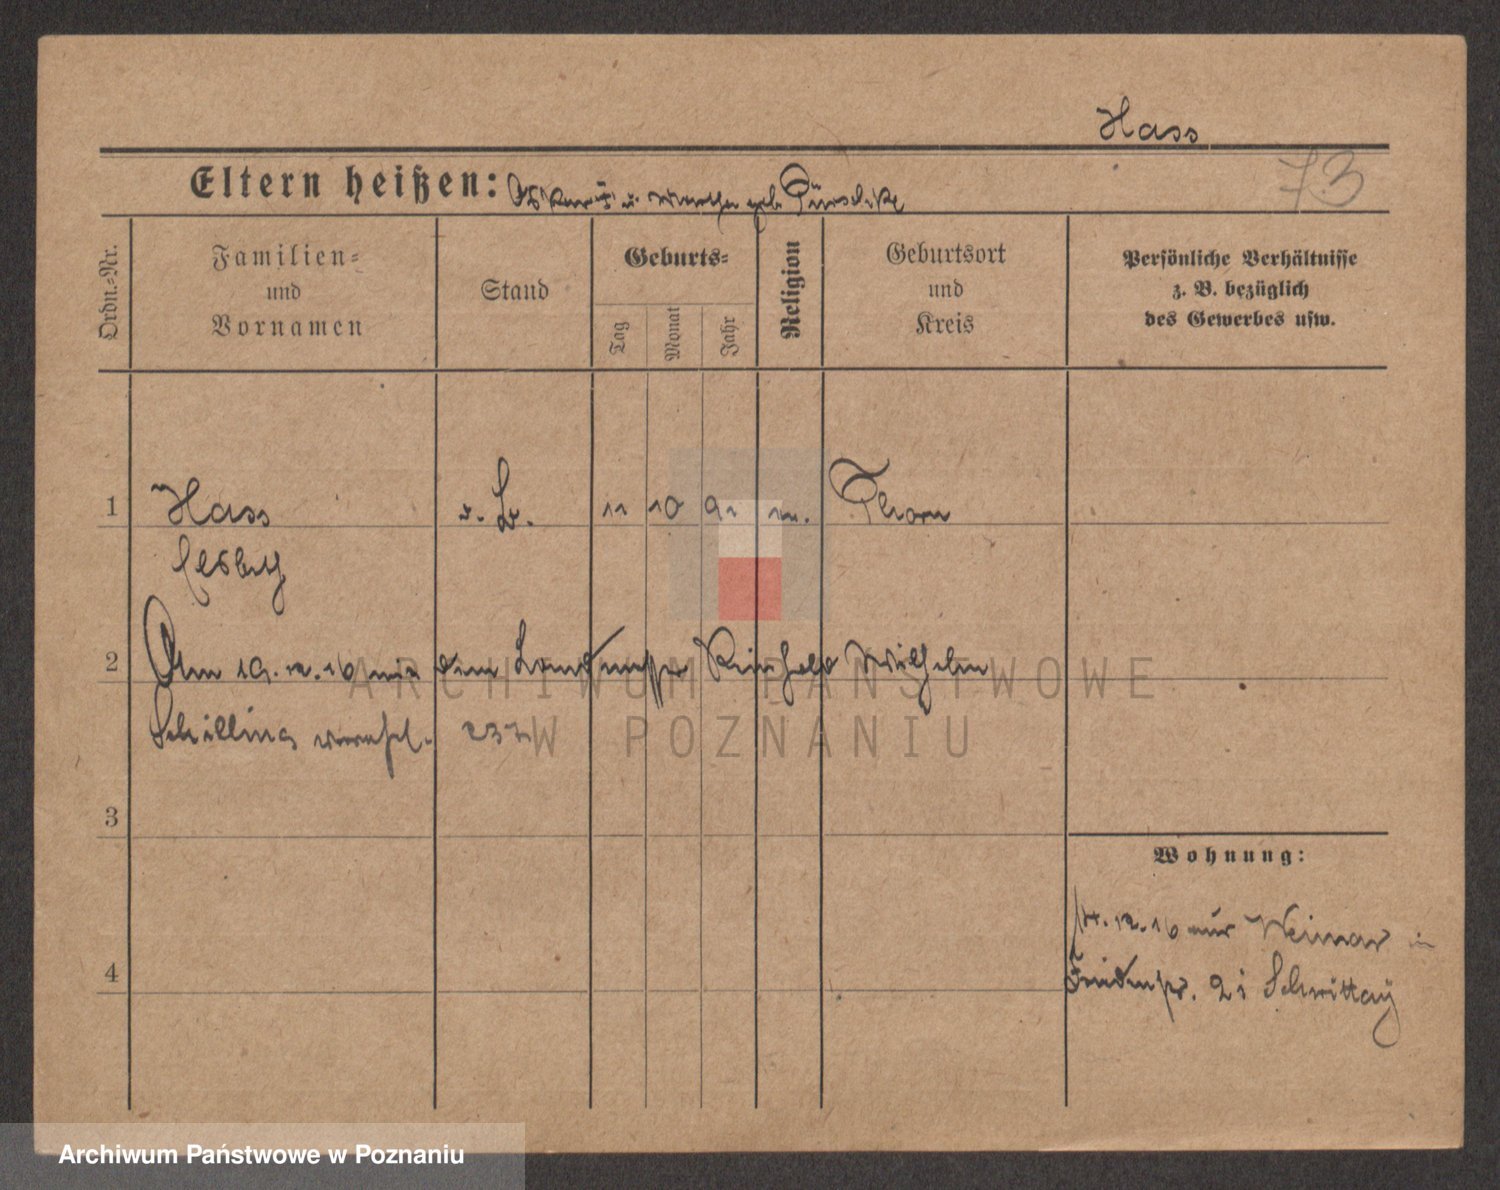 Hass
73
Eltern heißen: u. geb.
Ordn.-Nr.
Familien-
und
Vornamen
Stand
Geburts-
Tag
Monat
Jahr
Religion
Geburtsort
und
Kreis
Persönliche Verhältnisse
z. B. bezüglich
des Gewerbes usw.
1 Hass 11 10 91 Thorn
Elsbeth
2 Am 19. 12. 16 mit dem Reinhold Wilhelm
Schilling verehel.
3
Wohnung:
12. 16 aus Weimar in
4
21 Schwittay
ARCHIWUM PAŃSTWOWE
W POZNANIU
Archiwum Państwowe w Poznaniu